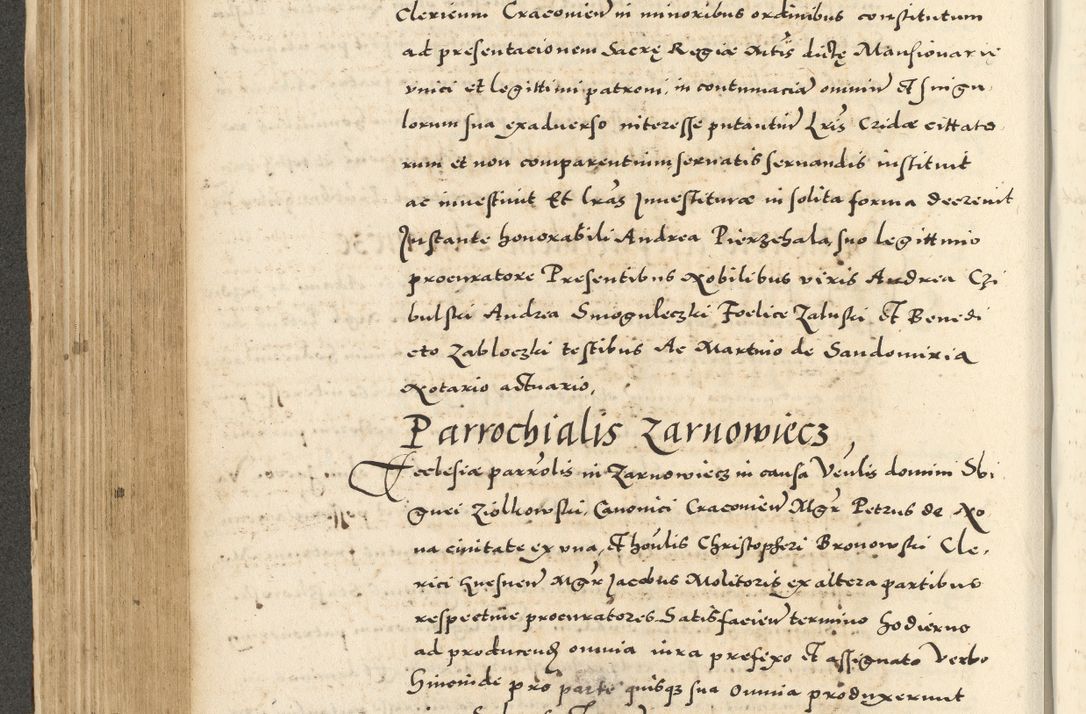 Clericum Cracovien̄ in minoribus ordinibus constitutum
ad presentacionem Sacrę Regiæ Mtīs dictę Mansionarię
vnici et legittimi patroni, in contumaciā omniū et singu
lorum sua exaduerso interesse putantiū Lrīs Cridæ cittato
rum et non comparentium, seruatis seruandis instituit
ac inuestiuit Et lrās Inuestituræ in solita forma decreuit
Instante honorabili Andrea Pierzchala, suo legittimo
procuratore Presentibus Nobilibus viris Andrea Czi
bulski Andrea Smoguleczki Foelice Zaluski et Benedi
cto Zabloczki testibus Ac Martino de Sandomiria
Notario actuario,
Parrochialis Zarnowiecz,
Ecclesiæ parrōlis in Zarnowiecz in causa Venlīs domini Sbi
gnei Ziolkowski, Canonici Cracovien̄ Mgr̄ Petrus de No
na ciuitate ex vna, et honlīs Christopheri Bronowski Cle,
rici Gnesnen̄ Mgr̄ Jacobus Molitoris ex altera partibus
respectiue procuratores Satisfacien̄ termino hodierno
ad producend omnia iura prefixo et assignato Verbo
Hincinde pro parte quisq sua Omnia produxerunt